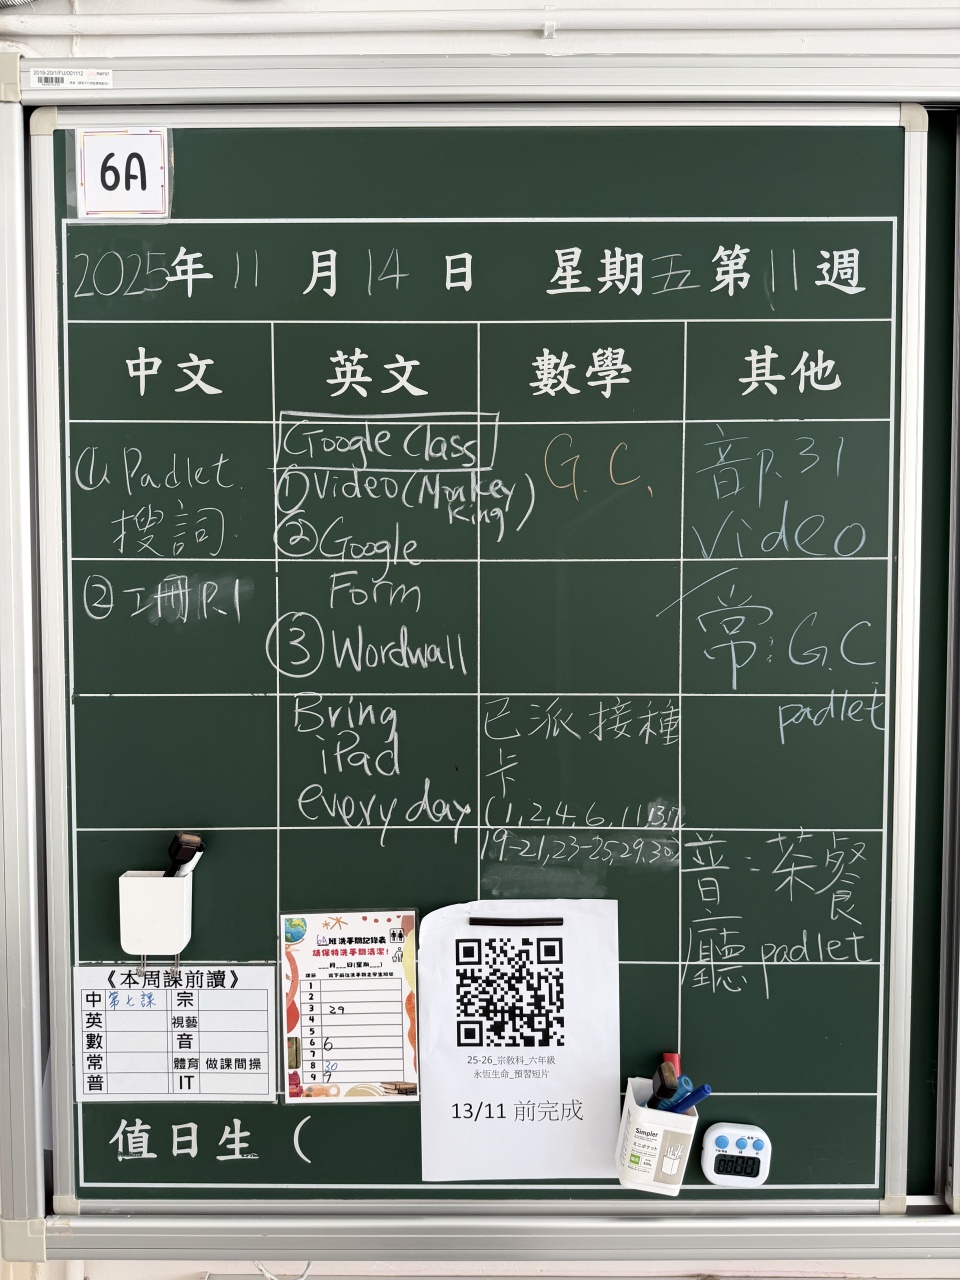 2019-20/1/FU/001112
6A
2025年 11 月 14 日 星期五 第 11 週
中文
英文
數學
其他
① Padlet
搜詞
② 工冊 P.1
Google Class
① Video (Monkey King)
② Google
Form
③ Wordwall
Bring
iPad
every day
G.C.
已派接種
卡
(1, 2, 4, 6, 11, 13, 17
19-21, 23-25, 29, 30)
音 P.31
Video
常: G.C
padlet
普: 茶餐
廳 padlet
《本周課前讀》
中 第七課 宗
英 視藝
數 音
常 體育 做課間操
普 IT
6A班洗手間記錄表
請保持洗手間清潔!
___月___日(星期___)
1
2
3 29
4
5
6 6
7
8 30
9 7
25-26_宗教科_六年級
永恆生命_預習短片
13/11 前完成
值日生 (
Simpler
ミニポケット